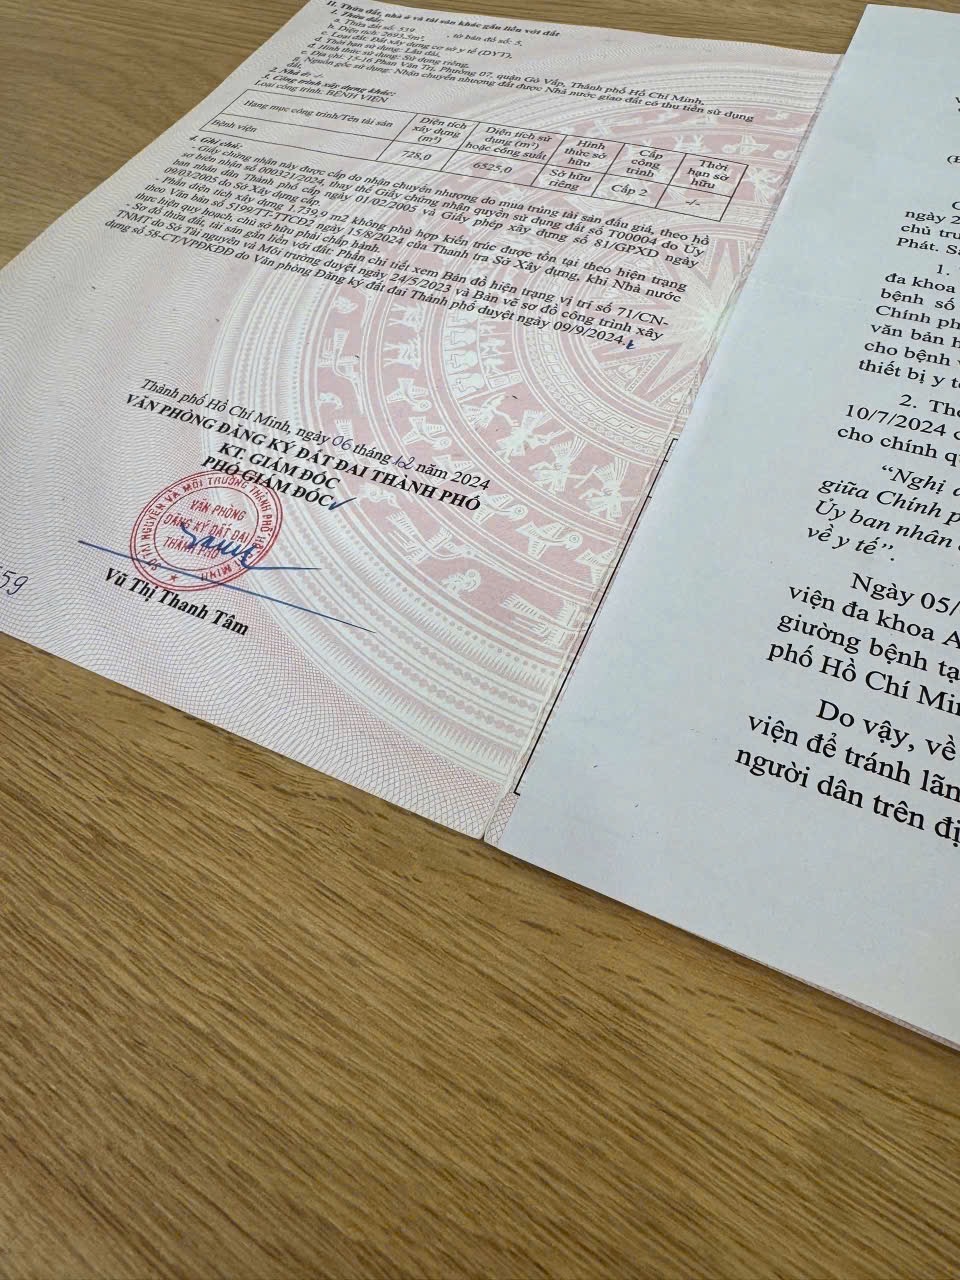 II. Thửa đất, nhà ở và tài sản khác gắn liền với đất
1. Thửa đất:
a. Thửa đất số: 539 , tờ bản đồ số: 5,
b. Diện tích: 2693,5m²,
c. Loại đất: Đất xây dựng cơ sở y tế (DYT),
d. Thời hạn sử dụng: Lâu dài,
đ. Hình thức sử dụng: Sử dụng riêng,
e. Địa chỉ: 15-16 Phan Văn Trị, Phường 07, quận Gò Vấp, Thành phố Hồ Chí Minh,
g. Nguồn gốc sử dụng: Nhận chuyển nhượng đất được Nhà nước giao đất có thu tiền sử dụng
đất.
2. Nhà ở: -/-
3. Công trình xây dựng khác:
Loại công trình: BỆNH VIỆN
Hạng mục công trình/Tên tài sản
Diện tích
xây dựng
(m²)
Diện tích sử
dụng (m²)
hoặc công suất
Hình
thức sở
hữu
Cấp
công
trình
Thời
hạn sở
hữu
Bệnh viện
728,0
6525,0
Sở hữu
riêng
Cấp 2
-/-
4. Ghi chú:
- Giấy chứng nhận này được cấp do nhận chuyển nhượng do mua trúng tài sản đấu giá, theo hồ
sơ biên nhận số 000321/2024, thay thế Giấy chứng nhận quyền sử dụng đất số T00004 do Ủy
ban nhân dân Thành phố cấp ngày 01/02/2005 và Giấy phép xây dựng số 81/GPXD ngày
09/03/2005 do Sở Xây dựng cấp.
- Phần diện tích xây dựng 1.739,9 m2 không phù hợp kiến trúc được tồn tại theo hiện trạng
theo Văn bản số 5199/TT-TTCD2 ngày 15/8/2024 của Thanh tra Sở Xây dựng, khi Nhà nước
thực hiện quy hoạch, chủ sở hữu phải chấp hành.
- Sơ đồ thửa đất, tài sản gắn liền với đất: Phần chi tiết xem Bản đồ hiện trạng vị trí số 71/CN-
TNMT do Sở Tài nguyên và Môi trường duyệt ngày 24/5/2023 và Bản vẽ sơ đồ công trình xây
dựng số 58-CT/VPĐKĐĐ do Văn phòng Đăng ký đất đai Thành phố duyệt ngày 09/9/2024.
Thành phố Hồ Chí Minh, ngày 06 tháng 12 năm 2024
VĂN PHÒNG ĐĂNG KÝ ĐẤT ĐAI THÀNH PHỐ
KT. GIÁM ĐỐC
PHÓ GIÁM ĐỐC
SỞ TÀI NGUYÊN VÀ MÔI TRƯỜNG THÀNH PHỐ HỒ CHÍ MINH
VĂN PHÒNG
ĐĂNG KÝ ĐẤT ĐAI
THÀNH PHỐ
Vũ Thị Thanh Tâm
59
ngày 2
chủ trư
Phát. S
1.
đa khoa
bệnh số
Chính ph
văn bản h
cho bệnh v
thiết bị y t
2. Th
10/7/2024 c
cho chính q
“Nghị
giữa Chính p
Ủy ban nhân
về y tế”.
Ngày 05/
viện đa khoa A
giường bệnh tạ
phố Hồ Chí Min
Do vậy, về
viện để tránh lãn
người dân trên đị